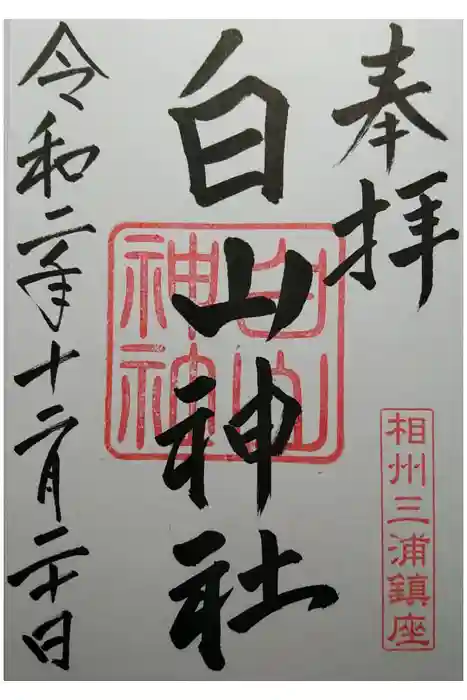 奉拝
相州三浦鎮座
白山神社
白山神社
令和二年十二月二十日